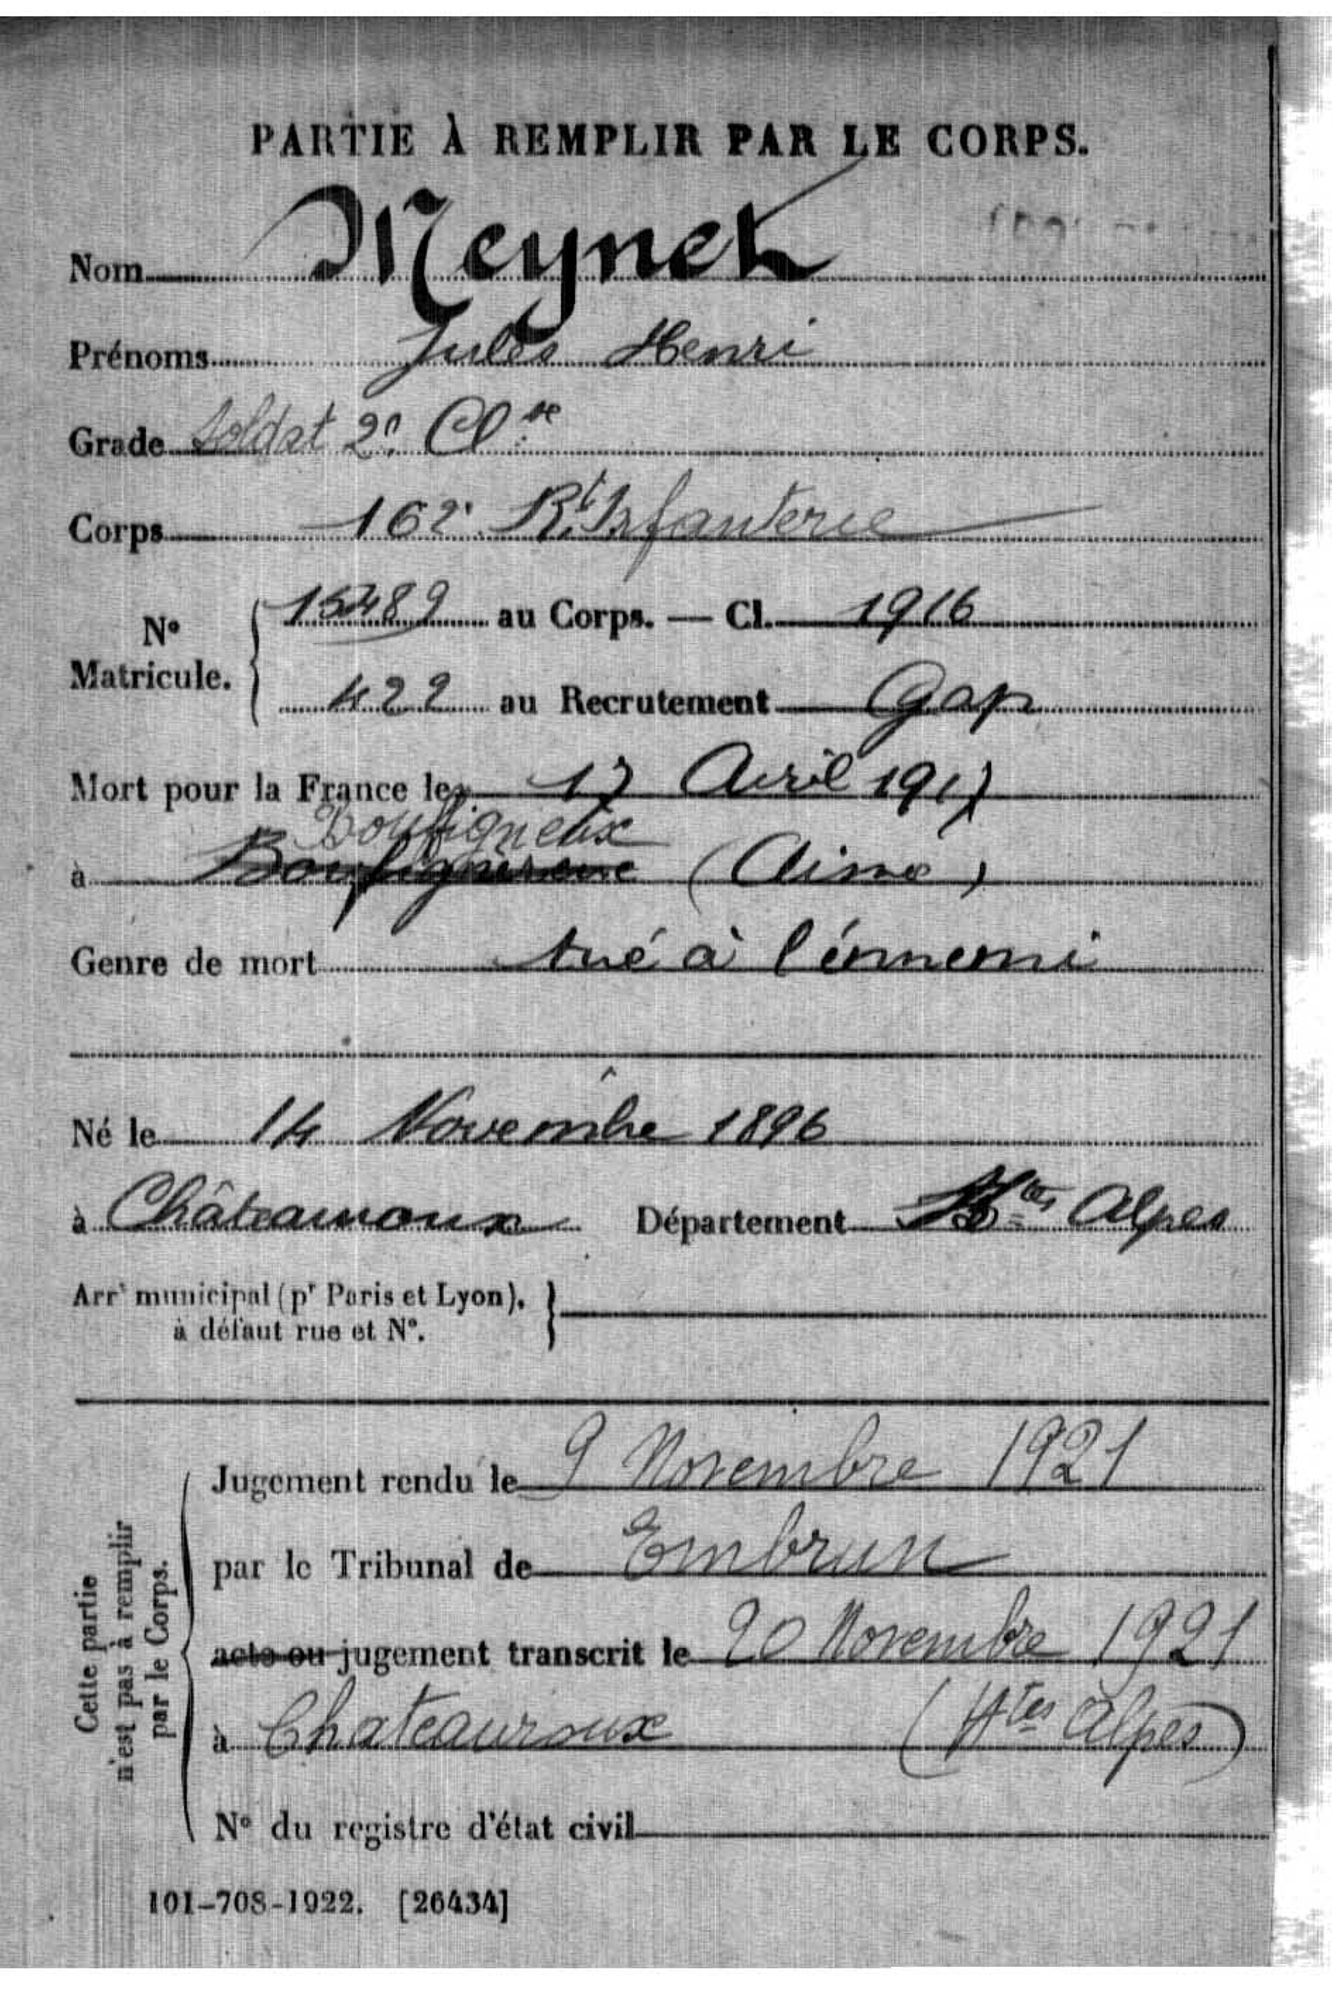 PARTIE À REMPLIR PAR LE CORPS.
Nom Meynet
Prénoms Jules Henri
Grade Soldat 2e Clse
Corps 162e Rt Infanterie
N° Matricule. 15489 au Corps. — Cl. 1916
422 au Recrutement Gap
Mort pour la France le 17 Avril 1917
Boufigneux
à (Aisne)
Genre de mort tué à l'ennemi
Né le 14 Novembre 1896
à Châteauroux Département Htes Alpes
Arrt municipal (pr Paris et Lyon),
à défaut rue et N°.
Cette partie
n'est pas à remplir
par le Corps.
Jugement rendu le 9 Novembre 1921
par le Tribunal de Embrun
acte ou jugement transcrit le 20 Novembre 1921
à Chateauroux (Htes Alpes)
N° du registre d'état civil
101-708-1922. [26434]